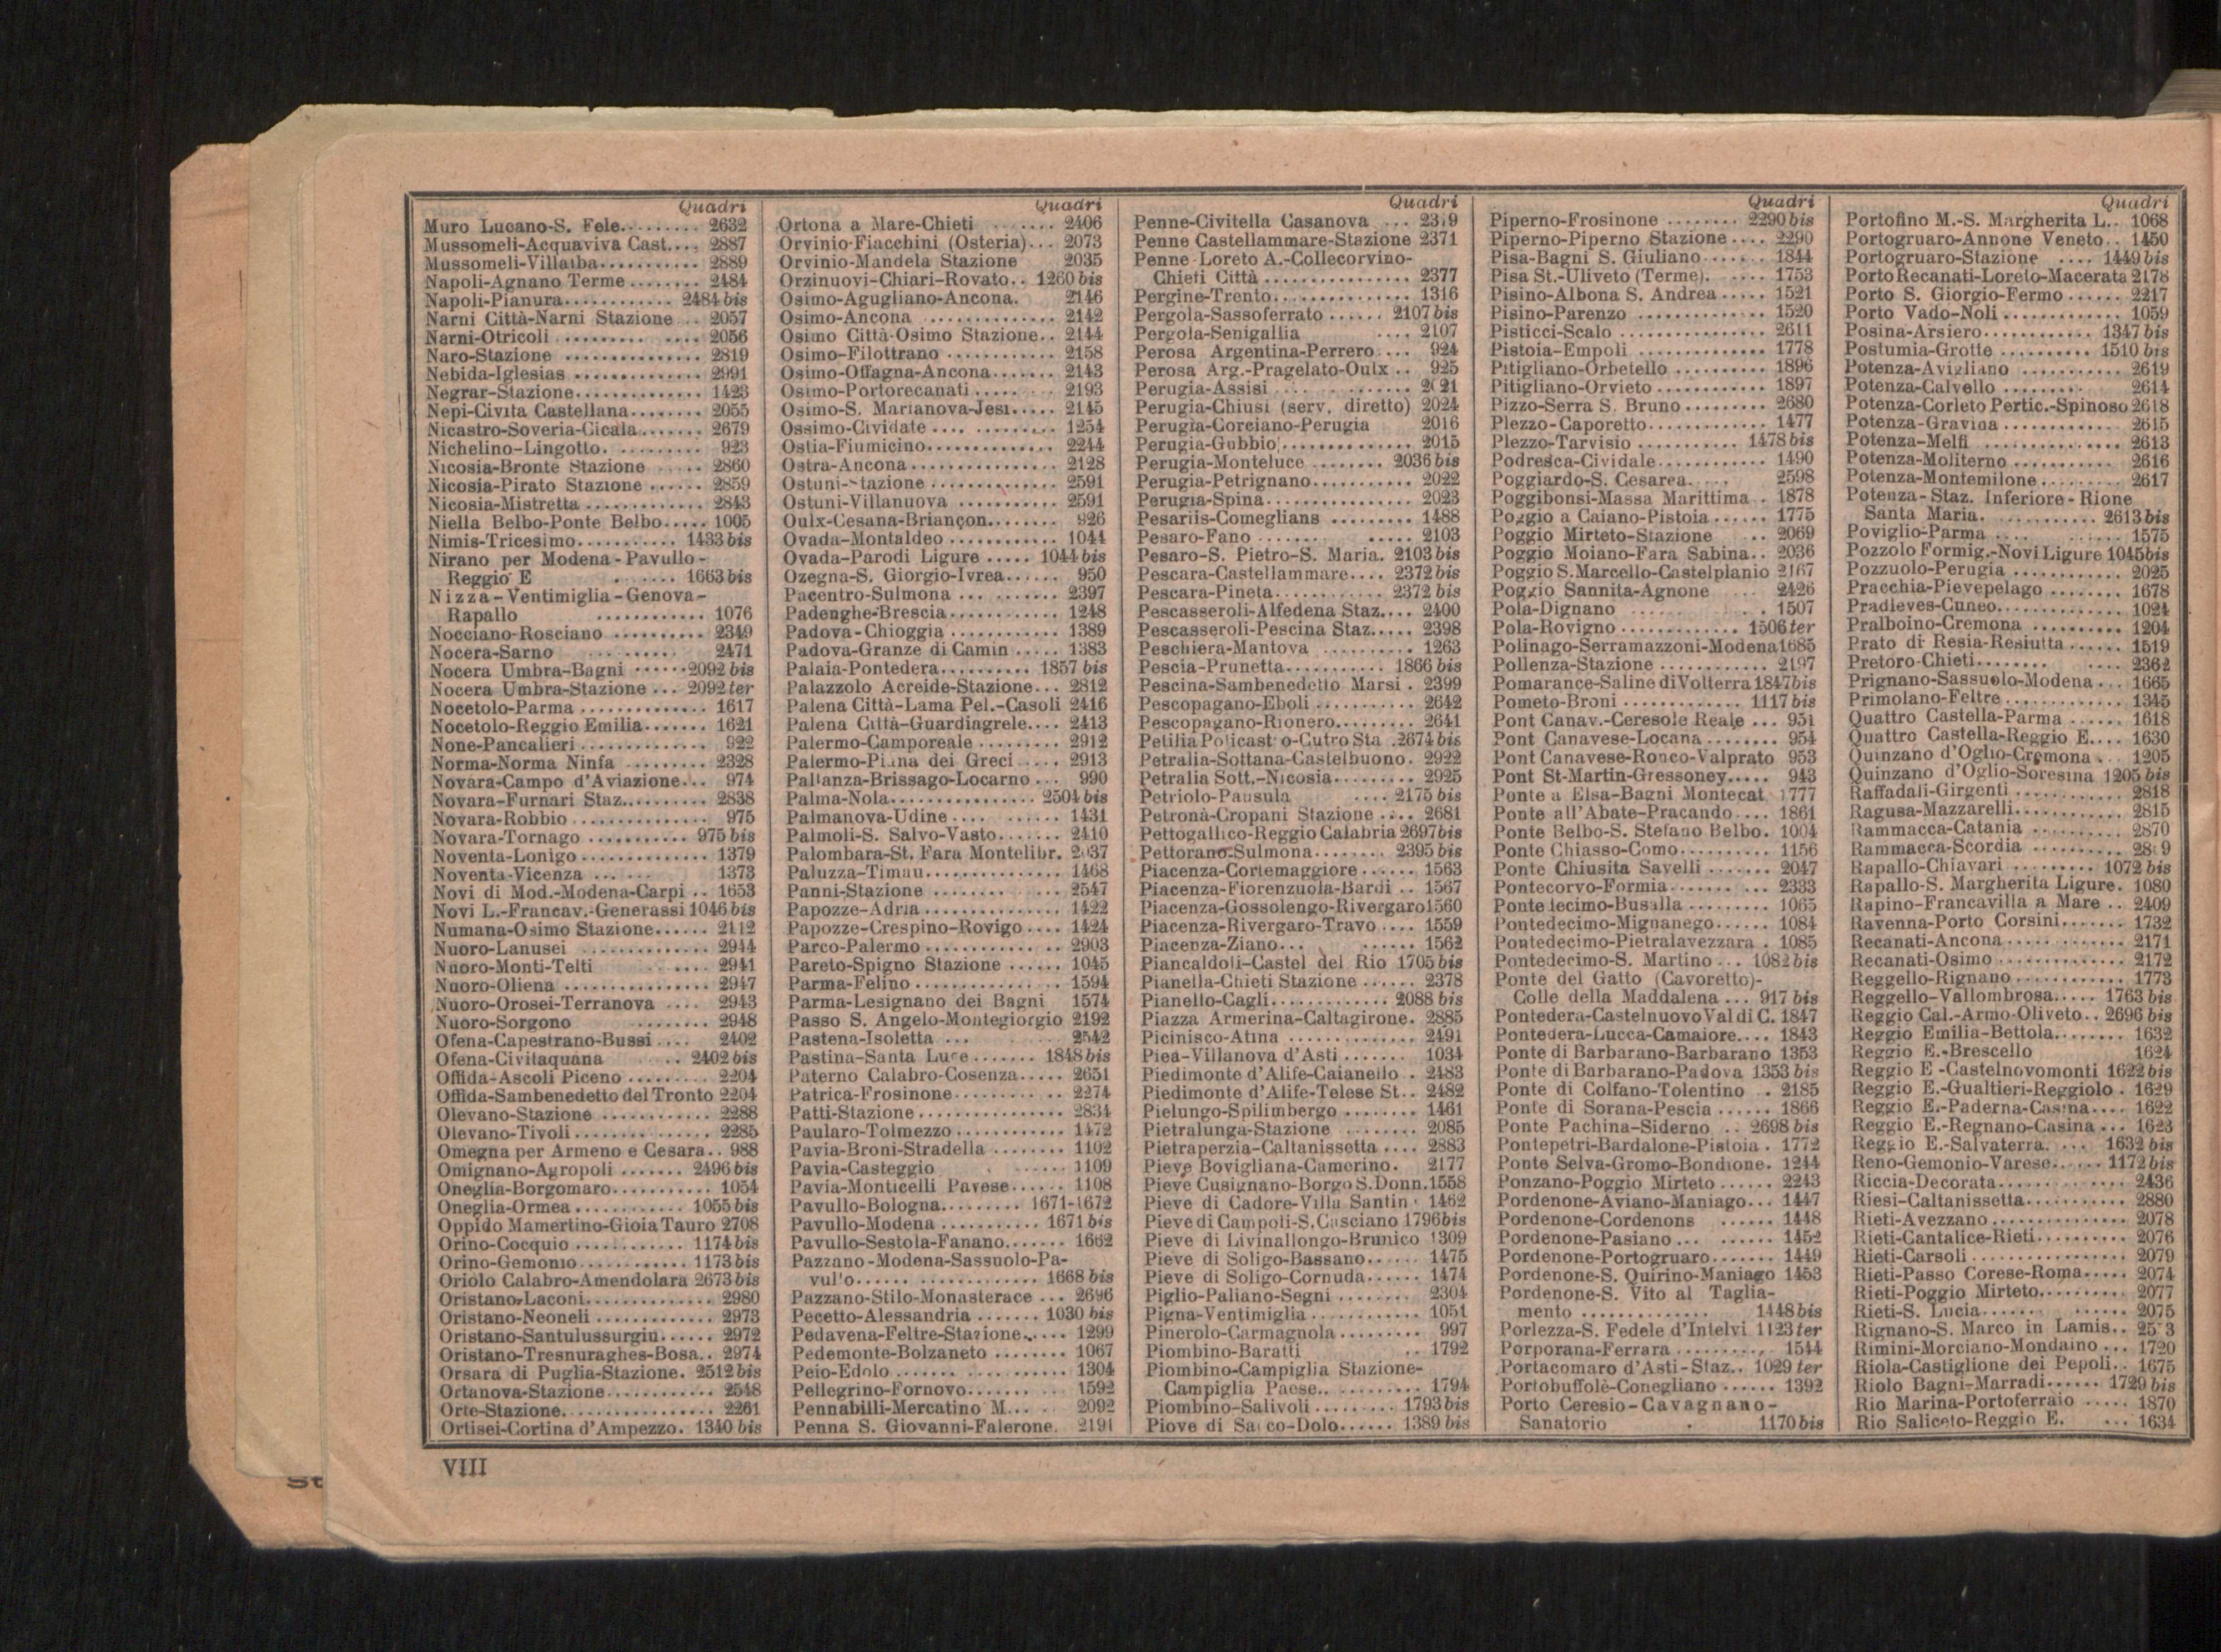 Quadri
Muro Lucano-S. Fele......... 2632
Mussomeli-Acquaviva Cast.... 2887
Mussomeli-Villalba........... 2889
Napoli-Agnano Terme ........ 2484
Napoli-Pianura............ 2484 bis
Narni Città-Narni Stazione .. 2057
Narni-Otricoli ......... .... 2056
Naro-Stazione .............. 2819
Nebida-Iglesias ............. 2991
Negrar-Stazione.............. 1423
Nepi-Civita Castellana........ 2055
Nicastro-Soveria-Cicala....... 2679
Nichelino-Lingotto. ......... 923
Nicosia-Bronte Stazione ..... 2860
Nicosia-Pirato Stazione ...... 2859
Nicosia-Mistretta ............ 2843
Niella Belbo-Ponte Belbo..... 1005
Nimis-Tricesimo........... 1433 bis
Nirano per Modena-Pavullo-
Reggio E ...... 1663 bis
Nizza-Ventimiglia-Genova-
Rapallo ............ 1076
Nocciano-Rosciano .......... 2349
Nocera-Sarno ......... 2471
Nocera Umbra-Bagni ......2092 bis
Nocera Umbra-Stazione ... 2092 ter
Nocetolo-Parma ............. 1617
Nocetolo-Reggio Emilia....... 1621
None-Pancalieri ............. 922
Norma-Norma Ninfa ......... 2328
Novara-Campo d'Aviazione... 974
Novara-Furnari Staz.......... 2838
Novara-Robbio .............. 975
Novara-Tornago ........... 975 bis
Noventa-Lonigo .............. 1379
Noventa-Vicenza ... ... 1373
Novi di Mod.-Modena-Carpi .. 1653
Novi L.-Francav.-Generassi 1046 bis
Numana-Osimo Stazione...... 2112
Nuoro-Lanusei ............. 2944
Nuoro-Monti-Telti ...... 2941
Nuoro-Oliena ................ 2947
Nuoro-Orosei-Terranova .... 2943
Nuoro-Sorgono ........ 2948
Ofena-Capestrano-Bussi .... 2402
Ofena-Civitaquana .. 2402 bis
Offida-Ascoli Piceno ......... 2204
Offida-Sambenedetto del Tronto 2204
Olevano-Stazione ............ 2288
Olevano-Tivoli............... 2285
Omegna per Armeno e Cesara.. 988
Omignano-Agropoli ....... 2496 bis
Oneglia-Borgomaro........... 1054
Oneglia-Ormea ............ 1055 bis
Oppido Mamertino-Gioia Tauro 2708
Orino-Cocquio ............ 1174 bis
Orino-Gemonio............ 1173 bis
Oriolo Calabro-Amendolara 2673 bis
Oristano-Laconi.............. 2980
Oristano-Neoneli ............. 2973
Oristano-Santulussurgiu...... 2972
Oristano-Tresnuraghes-Bosa.. 2974
Orsara di Puglia-Stazione. 2512 bis
Ortanova-Stazione............ 2548
Orte-Stazione................. 2261
Ortisei-Cortina d'Ampezzo. 1340 bis
Quadri
Ortona a Mare-Chieti ....... 2406
Orvinio-Fiacchini (Osteria)... 2073
Orvinio-Mandela Stazione 2035
Orzinuovi-Chiari-Rovato.. 1260 bis
Osimo-Agugliano-Ancona. 2146
Osimo-Ancona .............. 2142
Osimo Città-Osimo Stazione.. 2144
Osimo-Filottrano ............ 2158
Osimo-Offagna-Ancona....... 2143
Osimo-Portorecanati ........ 2193
Osimo-S. Marianova-Jesi..... 2145
Ossimo-Cividate .... ......... 1254
Ostia-Fiumicino.............. 2244
Ostra-Ancona................ 2128
Ostuni-Stazione .............. 2591
Ostuni-Villanuova ............ 2591
Oulx-Cesana-Briançon........ 926
Ovada-Montaldeo ............ 1044
Ovada-Parodi Ligure ..... 1044 bis
Ozegna-S. Giorgio-Ivrea...... 950
Pacentro-Sulmona ... ....... 2397
Padenghe-Brescia............ 1248
Padova-Chioggia ............ 1389
Padova-Granze di Camin ..... 1383
Palaia-Pontedera.......... 1857 bis
Palazzolo Acreide-Stazione... 2812
Palena Città-Lama Pel.-Casoli 2416
Palena Città-Guardiagrele.... 2413
Palermo-Camporeale ......... 2912
Palermo-Piana dei Greci ..... 2913
Pallanza-Brissago-Locarno ... 990
Palma-Nola................ 2504 bis
Palmanova-Udine .... ...... 1431
Palmoli-S. Salvo-Vasto....... 2410
Palombara-St. Fara Montelibr. 2037
Paluzza-Timau............... 1468
Panni-Stazione ........ ..... 2547
Papozze-Adria............... 1422
Papozze-Crespino-Rovigo .... 1424
Parco-Palermo ............ .. 2903
Pareto-Spigno Stazione ...... 1045
Parma-Felino ............... 1594
Parma-Lesignano dei Bagni 1574
Passo S. Angelo-Montegiorgio 2192
Pastena-Isoletta ... 2542
Pastina-Santa Luce ....... 1848 bis
Paterno Calabro-Cosenza..... 2651
Patrica-Frosinone............ 2274
Patti-Stazione ................ 2834
Paularo-Tolmezzo ............ 1472
Pavia-Broni-Stradella ........ 1102
Pavia-Casteggio ...... 1109
Pavia-Monticelli Pavese...... 1108
Pavullo-Bologna......... 1671-1672
Pavullo-Modena ........... 1671 bis
Pavullo-Sestola-Fanano....... 1662
Pazzano-Modena-Sassuolo-Pa-
vullo...... .............. 1668 bis
Pazzano-Stilo-Monasterace ... 2696
Pecetto-Alessandria ....... 1030 bis
Pedavena-Feltre-Stazione..... 1299
Pedemonte-Bolzaneto ........ 1067
Peio-Edolo ....... ........... 1304
Pellegrino-Fornovo........... 1592
Pennabilli-Mercatino M... . 2092
Penna S. Giovanni-Falerone. 2191
Quadri
Penne-Civitella Casanova ...
Penne Castellammare-Stazione 2371
Penne-Loreto A.-Collecorvino-
Chieti Città ................ 2377
Pergine-Trento............... 1316
Pergola-Sassoferrato ...... 2107 bis
Pergola-Senigallia .... 2107
Perosa Argentina-Perrero.... 924
Perosa Arg.-Pragelato-Oulx .. 925
Perugia-Assisi .... ....... 2021
Perugia-Chiusi (serv. diretto) 2024
Perugia-Corciano-Perugia 2016
Perugia-Gubbio.............. 2015
Perugia-Monteluce ........ 2036 bis
Perugia-Petrignano........... 2022
Perugia-Spina................ 2023
Pesariis-Comeglians ......... 1488
Pesaro-Fano ....... ..... 2103
Pesaro-S. Pietro-S. Maria. 2103 bis
Pescara-Castellammare.... 2372 bis
Pescara-Pineta............ 2372 bis
Pescasseroli-Alfedena Staz.... 2400
Pescasseroli-Pescina Staz..... 2398
Peschiera-Mantova .......... 1263
Pescia-Prunetta........... 1866 bis
Pescina-Sambenedetto Marsi . 2399
Pescopagano-Eboli ........... 2642
Pescopagano-Rionero......... 2641
Petilia Policastro-Cutro Sta .2674 bis
Petralia-Sottana-Castelbuono. 2922
Petralia Sott.-Nicosia......... 2925
Petriolo-Pausula .... 2175 bis
Petronà-Cropani Stazione .... 2681
Pettogallico-Reggio Calabria 2697 bis
Pettorano-Sulmona........ 2395 bis
Piacenza-Cortemaggiore ...... 1563
Piacenza-Fiorenzuola-Bardi .. 1567
Piacenza-Gossolengo-Rivergaro 1560
Piacenza-Rivergaro-Travo .... 1559
Piacenza-Ziano... ...... 1562
Piancaldoli-Castel del Rio 1705 bis
Pianella-Chieti Stazione ...... 2378
Pianello-Cagli............ 2088 bis
Piazza Armerina-Caltagirone. 2885
Picinisco-Atina .............. 2491
Piea-Villanova d'Asti ....... 1034
Piedimonte d'Alife-Caianello . 2483
Piedimonte d'Alife-Telese St.. 2482
Pielungo-Spilimbergo ........ 1461
Pietralunga-Stazione ........ 2085
Pietraperzia-Caltanissetta .... 2883
Pieve Bovigliana-Camerino. 2177
Pieve Cusignano-Borgo S. Donn. 1558
Pieve di Cadore-Villa Santin 1462
Pieve di Campoli-S. Casciano 1796 bis
Pieve di Livinallongo-Brunico 1309
Pieve di Soligo-Bassano...... 1475
Pieve di Soligo-Cornuda...... 1474
Piglio-Paliano-Segni ........ 2304
Pigna-Ventimiglia ............ 1051
Pinerolo-Carmagnola ......... 997
Piombino-Baratti .. 1792
Piombino-Campiglia Stazione-
Campiglia Paese.. ......... 1794
Piombino-Salivoli ......... 1793 bis
Piove di Sacco-Dolo...... 1389 bis
Quadri
Piperno-Frosinone ........ 2290 bis
Piperno-Piperno Stazione .... 2290
Pisa-Bagni S. Giuliano....... 1844
Pisa St.-Uliveto (Terme). .... 1753
Pisino-Albona S. Andrea..... 1521
Pisino-Parenzo ............. 1520
Pisticci-Scalo ................ 2611
Pistoia-Empoli .............. 1778
Pitigliano-Orbetello .......... 1896
Pitigliano-Orvieto ............ 1897
Pizzo-Serra S. Bruno ......... 2680
Plezzo-Caporetto............. 1477
Plezzo-Tarvisio ........... 1478 bis
Podresca-Cividale............ 1490
Poggiardo-S. Cesarea..... 2598
Poggibonsi-Massa Marittima . 1878
Poggio a Caiano-Pistoia ...... 1775
Poggio Mirteto-Stazione .. 2069
Poggio Moiano-Fara Sabina.. 2036
Poggio S. Marcello-Castelplanio 2167
Poggio Sannita-Agnone 2426
Pola-Dignano ... . . 1507
Pola-Rovigno ............. 1506 ter
Polinago-Serramazzoni-Modena 1685
Pollenza-Stazione ............ 2197
Pomarance-Saline di Volterra 1847 bis
Pometo-Broni ............. 1117 bis
Pont Canav.-Ceresole Reale ... 951
Pont Canavese-Locana ........ 954
Pont Canavese-Ronco-Valprato 953
Pont St-Martin-Gressoney..... 943
Ponte a Elsa-Bagni Montecat 1777
Ponte all'Abate-Pracando .... 1861
Ponte Belbo-S. Stefano Belbo. 1004
Ponte Chiasso-Como.......... 1156
Ponte Chiusita Savelli ....... 2047
Pontecorvo-Formia....... ... 2333
Pontedecimo-Busalla ......... 1065
Pontedecimo-Mignanego...... 1084
Pontedecimo-Pietralavezzara . 1085
Pontedecimo-S. Martino ... 1082 bis
Ponte del Gatto (Cavoretto)-
Colle della Maddalena ... 917 bis
Pontedera-Castelnuovo Val di C. 1847
Pontedera-Lucca-Camaiore.... 1843
Ponte di Barbarano-Barbarano 1353
Ponte di Barbarano-Padova 1353 bis
Ponte di Colfano-Tolentino .. 2185
Ponte di Sorana-Pescia ...... 1866
Ponte Pachina-Siderno .. 2698 bis
Pontepetri-Bardalone-Pistoia . 1772
Ponte Selva-Gromo-Bondione. 1244
Ponzano-Poggio Mirteto ...... 2243
Pordenone-Aviano-Maniago... 1447
Pordenone-Cordenons ...... 1448
Pordenone-Pasiano ... ...... 1452
Pordenone-Portogruaro....... 1449
Pordenone-S. Quirino-Maniago 1453
Pordenone-S. Vito al Taglia-
mento .............. 1448 bis
Porlezza-S. Fedele d'Intelvi 1123 ter
Porporana-Ferrara ........... 1544
Portacomaro d'Asti-Staz.. 1029 ter
Portobuffolè-Conegliano ...... 1392
Porto Ceresio-Cavagnano-
Sanatorio . 1170 bis
Quadri
Portofino M.-S. Margherita L.. 1068
Portogruaro-Annone Veneto.. 1450
Portogruaro-Stazione .... 1449 bis
Porto Recanati-Loreto-Macerata 2178
Porto S. Giorgio-Fermo ...... 2217
Porto Vado-Noli ............. 1059
Posina-Arsiero............ 1347 bis
Postumia-Grotte .......... 1510 bis
Potenza-Avigliano ........... 2619
Potenza-Calvello ......... 2614
Potenza-Corleto Pertic.-Spinoso 2618
Potenza-Gravina ............ 2615
Potenza-Melfi .............. 2613
Potenza-Moliterno ........... 2616
Potenza-Montemilone......... 2617
Potenza-Staz. Inferiore-Rione
Santa Maria. .......... 2613 bis
Poviglio-Parma .... ...... 1575
Pozzolo Formig.-Novi Ligure 1045 bis
Pozzuolo-Perugia ............ 2025
Pracchia-Pievepelago ........ 1678
Pradleves-Cuneo.............. 1024
Pralboino-Cremona .......... 1204
Prato di Resia-Resiutta ...... 1519
Pretoro-Chieti........ .... 2362
Prignano-Sassuolo-Modena ... 1665
Primolano-Feltre ............. 1345
Quattro Castella-Parma ...... 1618
Quattro Castella-Reggio E.... 1630
Quinzano d'Oglio-Cremona .. 1205
Quinzano d'Oglio-Soresina 1205 bis
Raffadali-Girgenti ............ 2818
Ragusa-Mazzarelli............ 2815
Rammacca-Catania .......... 2870
Rammacca-Scordia ..........
Rapallo-Chiavari ......... 1072 bis
Rapallo-S. Margherita Ligure. 1080
Rapino-Francavilla a Mare .. 2409
Ravenna-Porto Corsini....... 1732
Recanati-Ancona............. 2171
Recanati-Osimo .............. 2172
Reggello-Rignano ............ 1773
Reggello-Vallombrosa..... 1763 bis
Reggio Cal.-Armo-Oliveto.. 2696 bis
Reggio Emilia-Bettola........ 1632
Reggio E.-Brescello 1624
Reggio E-Castelnovomonti 1622 bis
Reggio E.-Gualtieri-Reggiolo . 1629
Reggio E.-Paderna-Casina.... 1622
Reggio E.-Regnano-Casina ... 1623
Reggio E.-Salvaterra. ... 1632 bis
Reno-Gemonio-Varese...... 1172 bis
Riccia-Decorata.............. 2436
Riesi-Caltanissetta........... 2880
Rieti-Avezzano .............. 2078
Rieti-Cantalice-Rieti.......... 2076
Rieti-Carsoli ................ 2079
Rieti-Passo Corese-Roma..... 2074
Rieti-Poggio Mirteto.......... 2077
Rieti-S. Lucia....... ...... 2075
Rignano-S. Marco in Lamis..
Rimini-Morciano-Mondaino ... 1720
Riola-Castiglione dei Pepoli.. 1675
Riolo Bagni-Marradi...... 1729 bis
Rio Marina-Portoferraio ..... 1870
Rio Saliceto-Reggio E. ... 1634
VIII